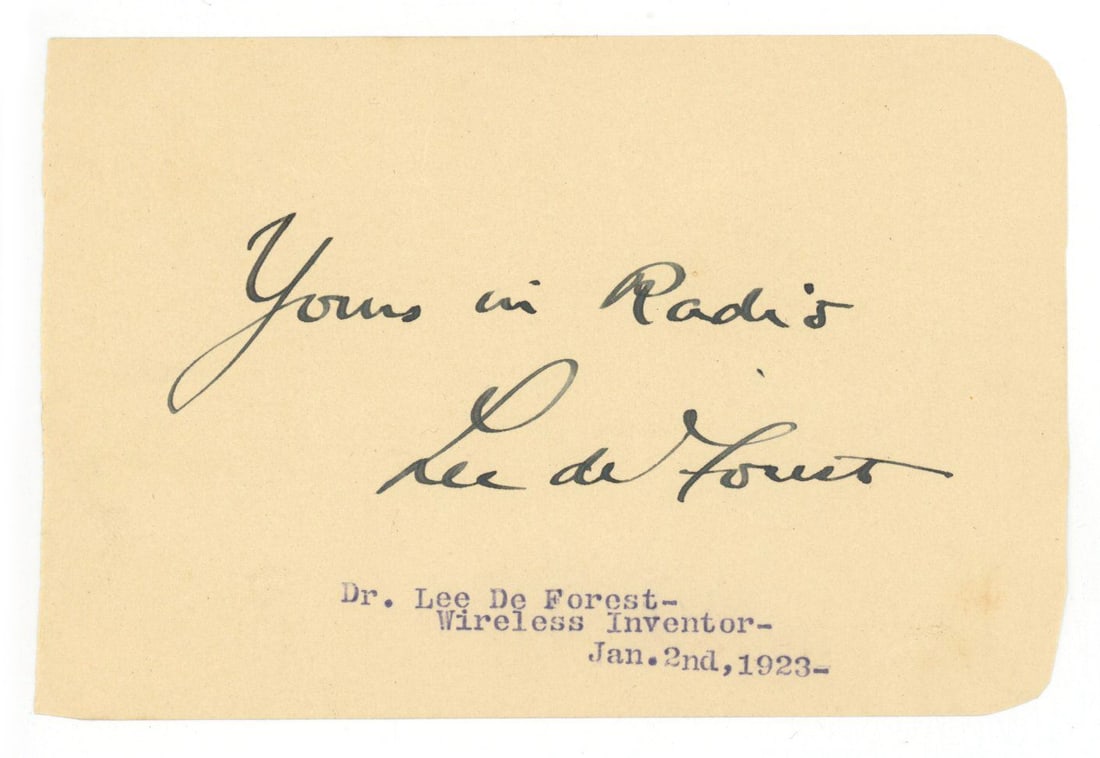 Yours in Radio
Lee de Forest
Dr. Lee De Forest-
Wireless Inventor-
Jan.2nd,1923-